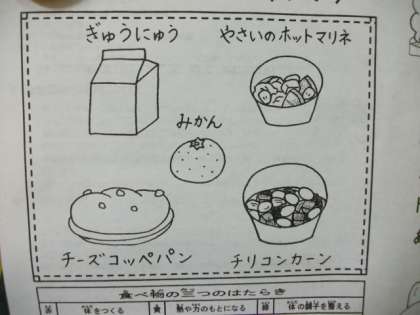 ぎゅうにゅう
やさいのホットマリネ
みかん
チーズコッペパン
チリコンカーン
食べ物の三つのはたらき
赤 体をつくる 黄 熱や力のもとになる 緑 体の調子を整える